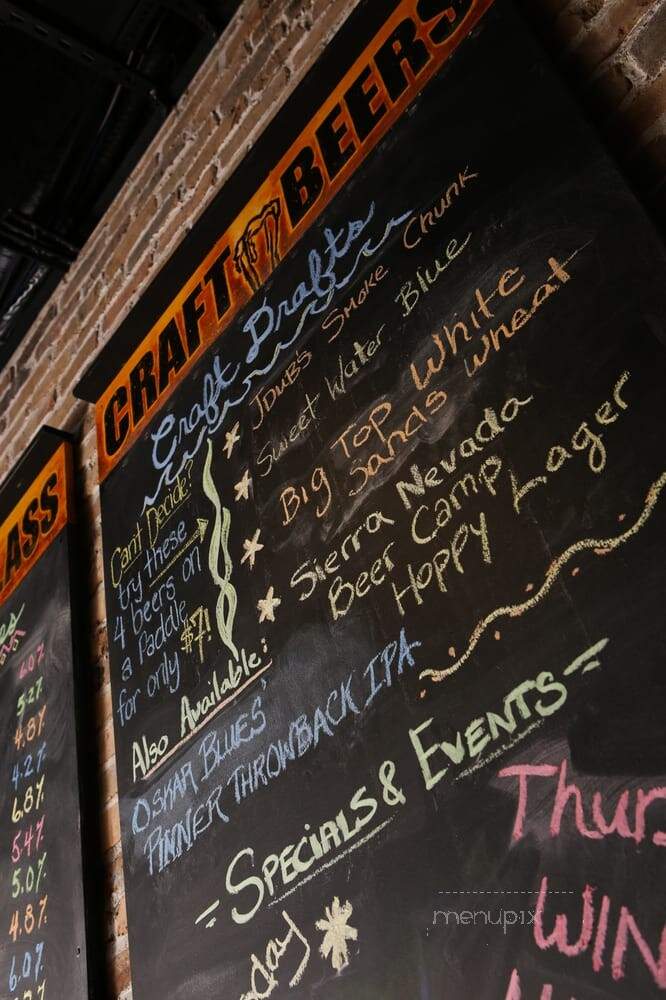 CRAFT BEERS
Craft Drafts
JDUB'S SMOKE CHUNK
Sweet Water Blue
Big Top White
Sands Wheat
Sierra Nevada
Beer Camp
HOPPY Lager
Can't Decide?
try these
4 beers on
a Paddle
for only $7!
Also Available:
OSKAR BLUES'
PINNER THROWBACK IPA
SPECIALS & EVENTS
Thurs
WIN
day
LASS
6.0%
5.2%
4.8%
4.2%
6.8%
5.4%
5.0%
4.8%
6.0%
menupix